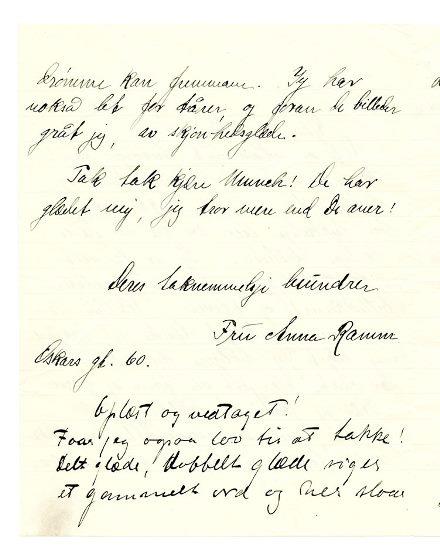 drömme kan fremmane. Jeg har
noksaa let for tårer, og foran de billeder
gråt jeg, av skjönhedsglæde.
Tak tak kjære Munch! De har
glædet mig, jeg tror mere end De aner!
Deres taknemmelige beundrer
Fru Anna Ramm
Oskars gt. 60.
Oplæst og vedtaget!
Faar jeg ogsaa lov til at takke!
Delt glæde, dobbelt glæde siger
et gammelt ord og her slaar